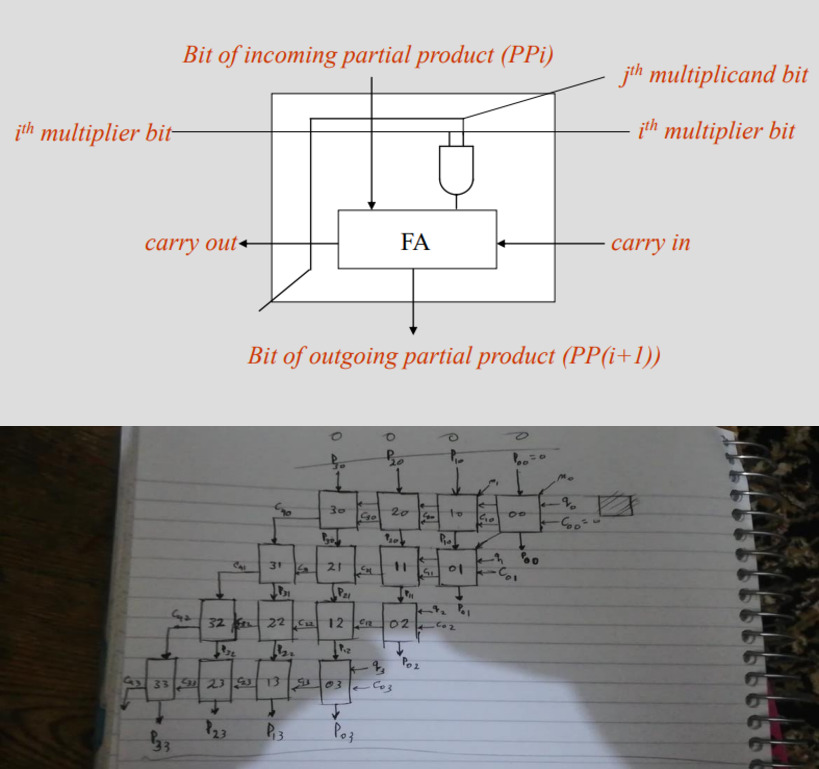 Bit of incoming partial product (PPi)
jth multiplicand bit
ith multiplier bit
ith multiplier bit
carry out
FA
carry in
Bit of outgoing partial product (PP(i+1))
0 0 0 0
P30 P20 P10 P00=0
m1 m0
C40 30 C30 20 C20 10 C10 00 q0
C00=0
P30 P20 P10 P00
C41 31 21 11 01
C01
P31 P21 P11 P01
C42 32 22 C22 12 C12 02 q2
C02
P32 P22 P12 P02
C43 33 23 13 03 q3
C03
P33 P23 P13 P03